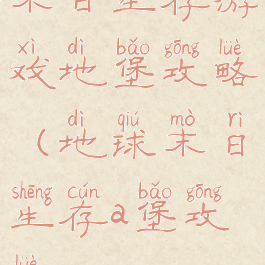 末日生存游
xì dì bǎo gōng lüè
戏地堡攻略
dì qiú mò rì
(地球末日
shēng cún bǎo gōng
生存a堡攻
lüè